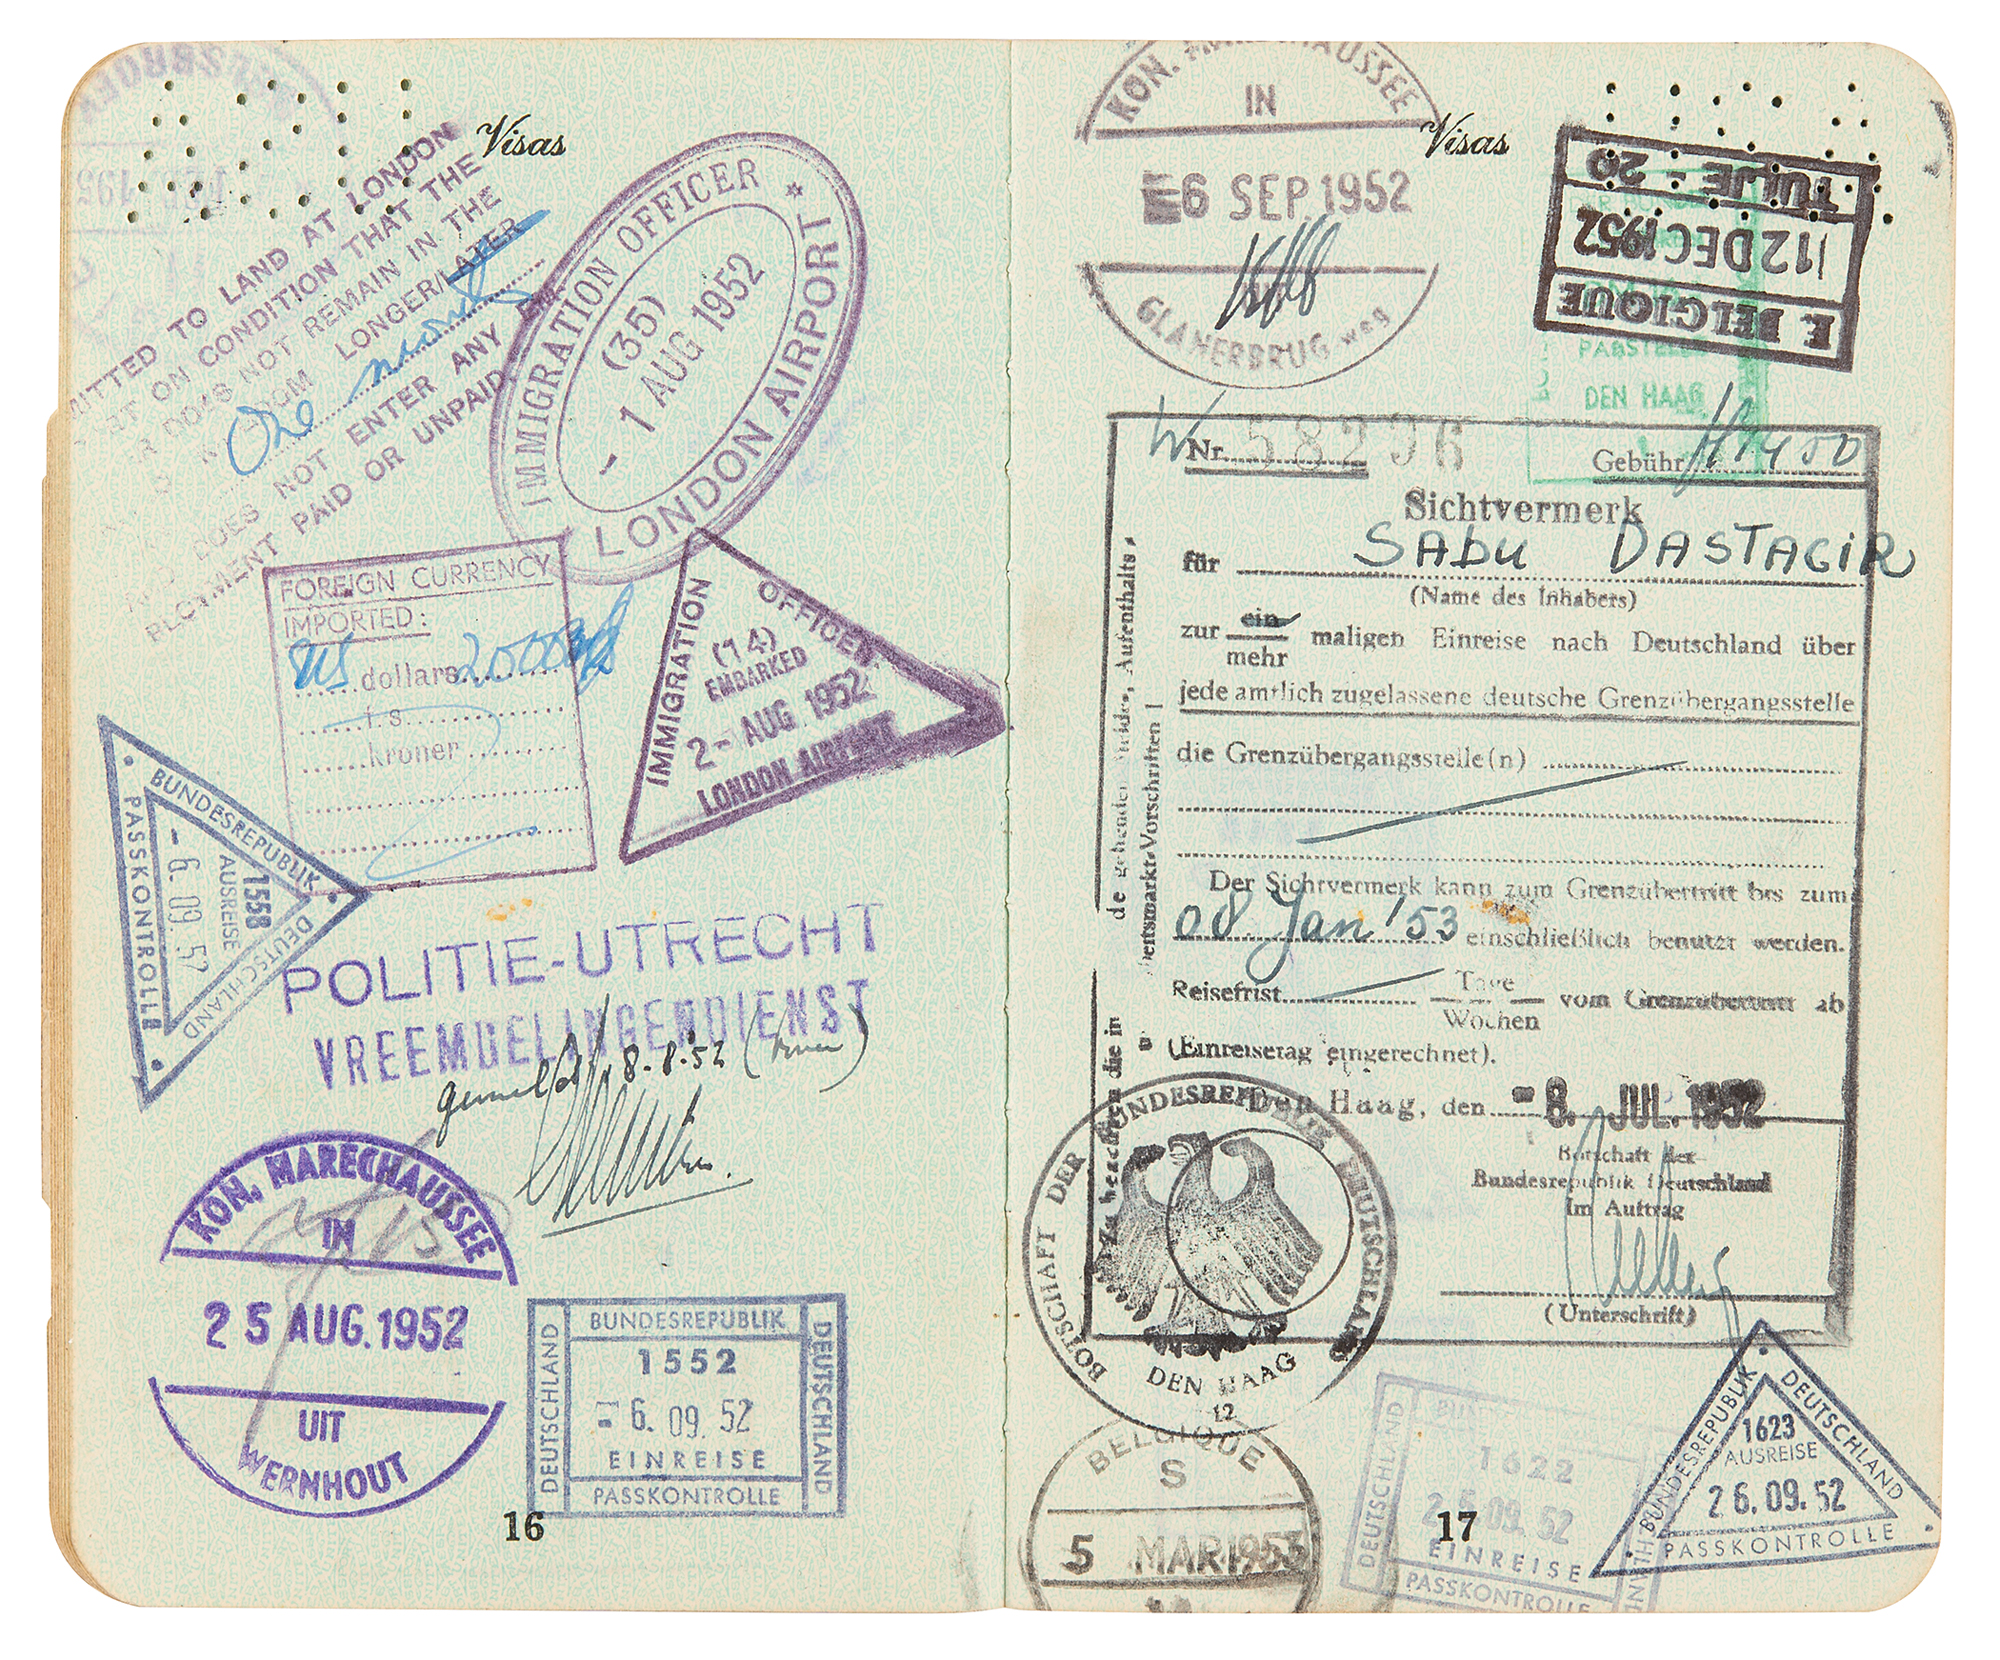 Visas
MITTED TO LAND AT LONDON
ON CONDITION THAT THE
DOES NOT REMAIN IN THE
LONGER/LATER
One month
DOES NOT ENTER ANY
PLOYMENT PAID OR UNPAID
IMMIGRATION OFFICER *
(35)
- 1 AUG 1952
LONDON AIRPORT
FOREIGN CURRENCY
IMPORTED:
US dollars 2000
f.s.
kroner
IMMIGRATION OFFICER
(14)
EMBARKED
2- AUG 1952
LONDON AIRPORT
BUNDESREPUBLIK
DEUTSCHLAND
PASSKONTROLLE
1558
AUSREISE
- 6. 09. 52
POLITIE-UTRECHT
VREEMDELINGENDIENST
8.8.'52
KON. MARECHAUSSEE
IN
25 AUG. 1952
UIT
WERNHOUT
BUNDESREPUBLIK
DEUTSCHLAND
DEUTSCHLAND
1552
- 6. 09. 52
EINREISE
PASSKONTROLLE
16
KON. MARECHAUSSEE
IN
6 SEP. 1952
GLANERBRUG weg
Visas
TUILJE - 20
12 DEC 1952
E. BELGIQUE
PAßSTELLE
DEN HAAG
Nr. 58296
Gebühr
Sichtvermerk
für SABU DASTAGIR
(Name des Inhabers)
zur ein maligen Einreise nach Deutschland über
mehr
jede amtlich zugelassene deutsche Grenzübergangsstelle
die Grenzübergangsstelle(n)
Der Sichtvermerk kann zum Grenzübertritt bis zum
08. Jan '53 einschließlich benutzt werden.
Reisefrist Tage vom Grenzübertritt ab
Wochen
(Einreisetag eingerechnet).
Den Haag, den - 8. JUL. 1952
Botschaft der
Bundesrepublik Deutschland
Im Auftrag
(Unterschrift)
Zu beachten die in
BOTSCHAFT DER BUNDESREPUBLIK DEUTSCHLAND
DEN HAAG
12
BELGIQUE
S
5 MAR 1953
DEUTSCHLAND
1622
09. 52
EINREISE
PASSKONTROLLE
17
BUNDESREPUBLIK
DEUTSCHLAND
1623
AUSREISE
26. 09. 52
PASSKONTROLLE